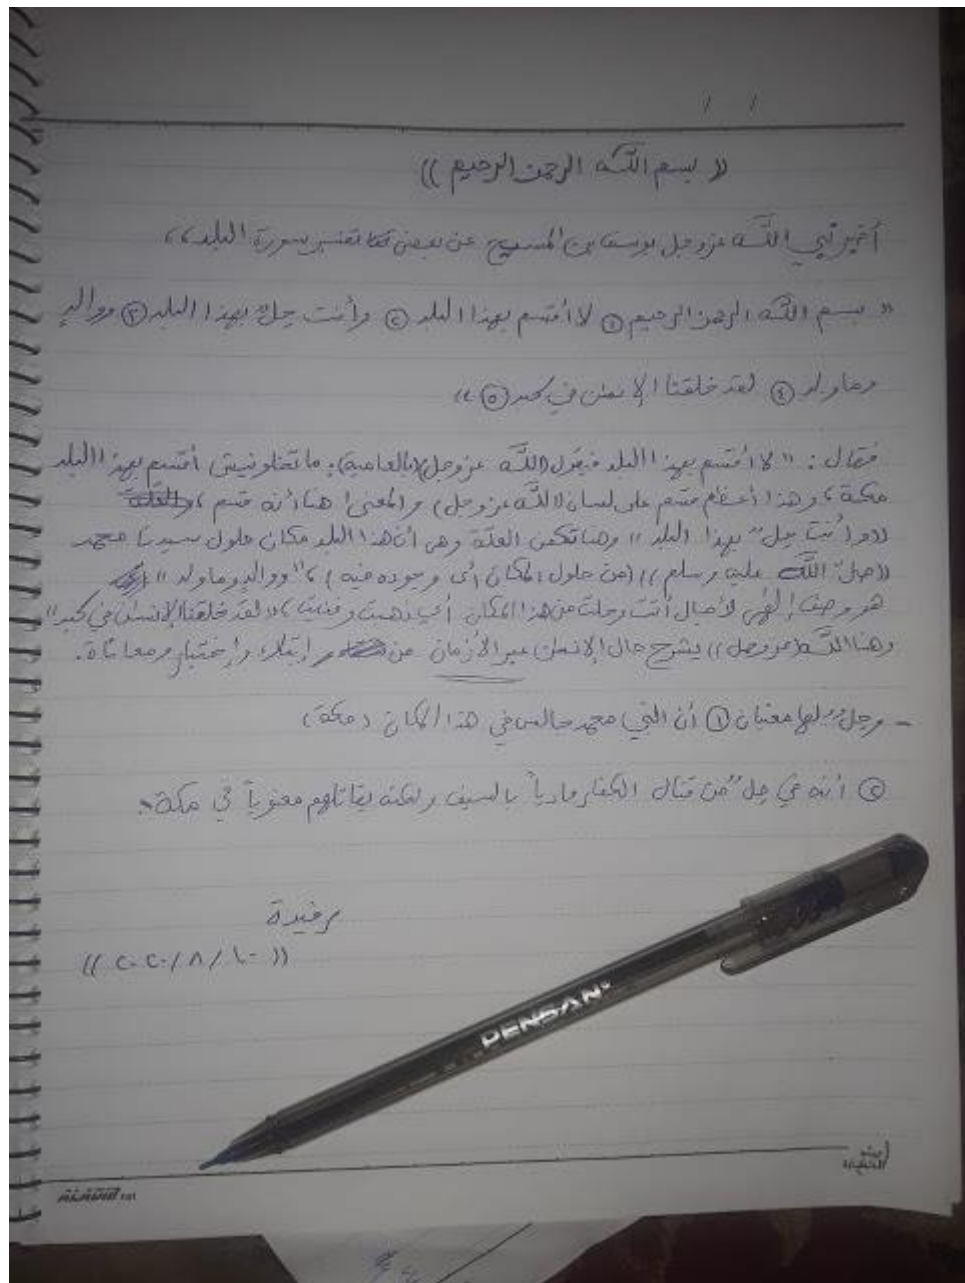 / /
(( بسم اللّه الرحمن الرحيم ))
أخبر نبي اللّه عزوجل يوسف بن المسيح عن بعض تفسير سورة البلد ،،
" بسم اللّه الرحمن الرحيم ① لا أقسم بهذا البلد ② وأنت حِلٌّ بهذا البلد ③ ووالدٍ
وما ولد ④ لقد خلقنا الإنسان في كبد ⑤ "
فقال : " لا أقسم بهذا البلد فيقول اللّه عزوجل (بالعامية): ما تخلونيش أقسم بهذا البلد
مكة ، وهذا أعظم قسم على لسان اللّه عزوجل ) والمعنى هنا أنه قسم ،
(( وأنت حِلٌّ بهذا البلد )) وهنا تكمن العلّة وهي أن هذا البلد مكان حلول سيدنا محمد
(( صلى اللّه عليه وسلم )) (من حلول المكان أي وجوده فيه ) ، " ووالدٍ وما ولد "
هو وصف إلهي لأجيال أتت وحلت من هذا المكان أي ذهبت وفنيت ، " لقد خلقنا الإنسان في كبد "
وهنا اللّه (عزوجل )) يشرح حال الإنسان عبر الأزمان من إبتلاء وإختبار ومعاناة .
- وحِلٌّ لها معنيان ① أن النبي محمد حالس في هذا المكان ( مكة )
② أنه في حِلٌّ من قتال الكفار مادياً بالسيف ولكنه يقاتلهم معنوياً في مكة .
رفيدة
(( ٢٠٢٠/٨/١٠ ))
PENSAN